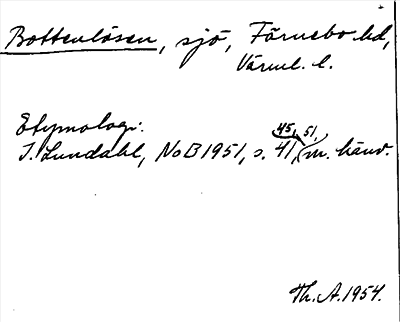 Bottenlösen, sjö, Färnebo hd,
Värml. l.
Etymologi:
I. Lundahl, NoB 1951, s. 41, 45, 51, m. hänv.
Th. A. 1954.